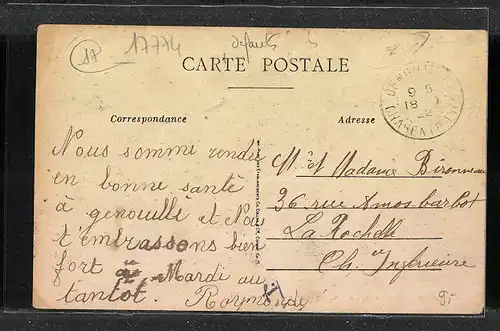 17
17774
defauts
CARTE POSTALE
Correspondance
Adresse
9 5
18
CHARENTE INF
Nous somme rendu
en bonne santé
à genouillé et Nou
t'embrassons bien
fort Mardi au
tantot. Raymonde
M. et Madame Bironneau
36 rue Amos barbot
La Rochelle
Ch. Inférieure